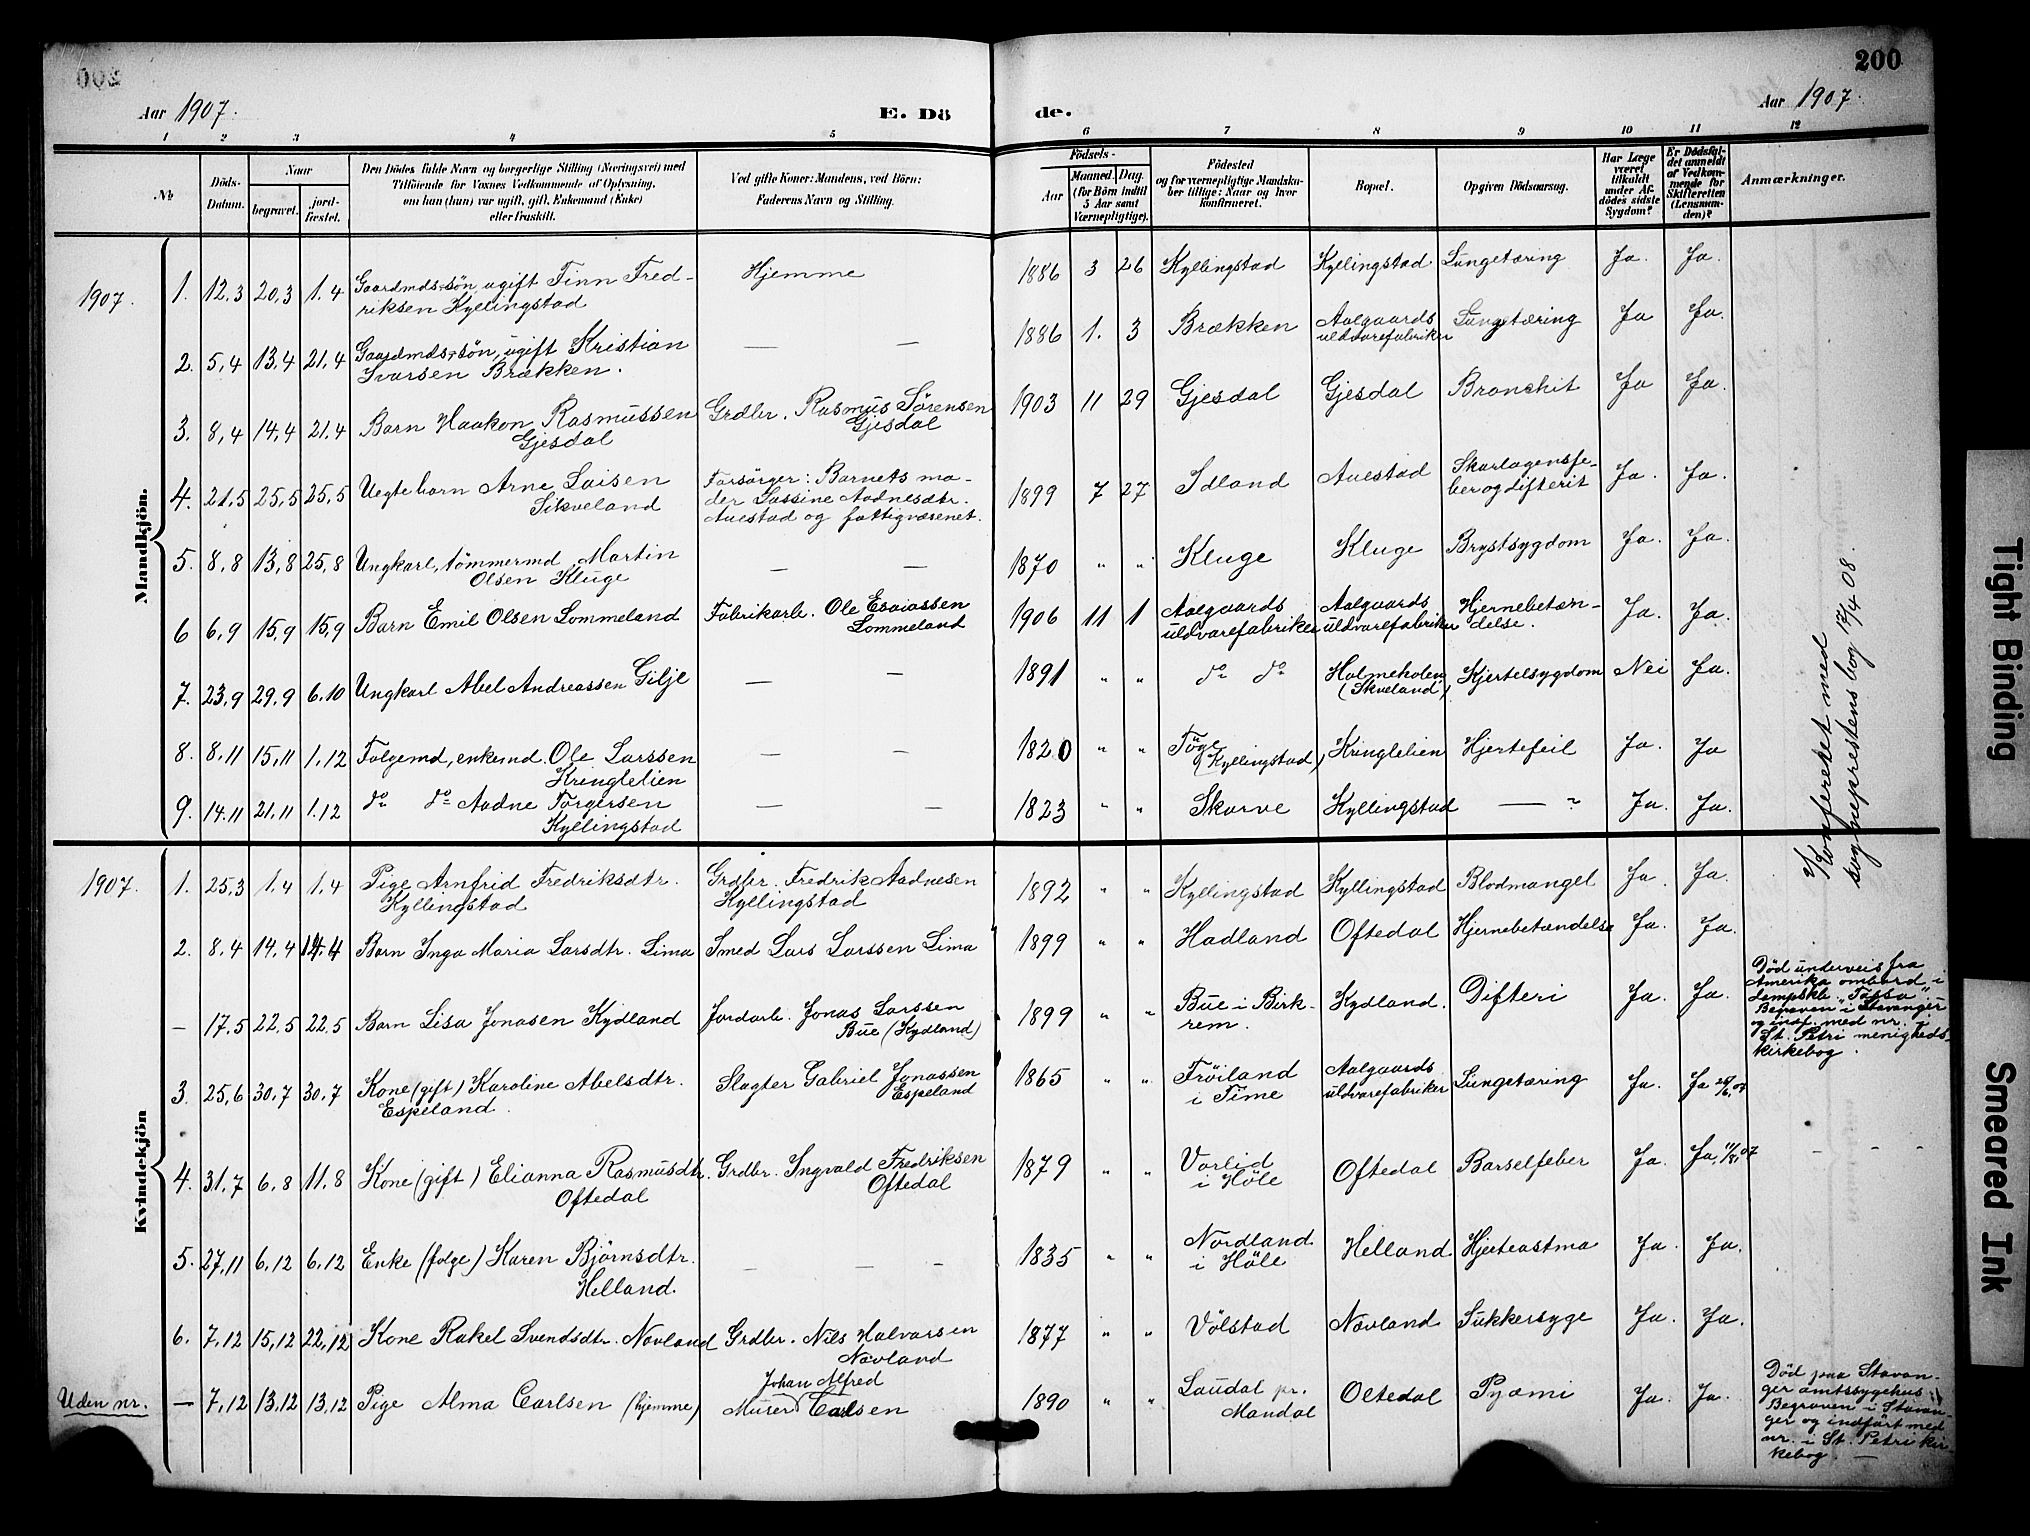 200
Aar 1907.
E. Döde.
Aar 1907.
1 2 3 4 5 6 7 8 9 10 11 12
№
Döds-
Datum.
Naar
begravet.
jord-
fæstet.
Den Dödes fulde Navn og borgerlige Stilling (Næringsvei) med
Tilföiende for Voxnes Vedkommende af Oplysning,
om han (hun) var ugift, gift, Enkemand (Enke)
eller fraskilt.
Ved gifte Koner: Mandens, ved Börn:
Faderens Navn og Stilling.
Födsels-
Aar
Maaned. Dag.
(for Börn indtil
5 Aar samt
Værnepligtige).
Födested
og for værnepligtige Mandska-
ber tillige: Naar og hvor
konfirmeret.
Bopæl.
Opgiven Dödsaarsag.
Har Læge
været
tilkaldt
under Af-
dödes sidste
Sygdom?
Er Dödsfal-
det anmeldt
af Vedkom-
mende for
Skifteretten
(Lensman-
den)?
Anmærkninger.
Mandkjön.
1907. 1. 12,3 20,3 1.4 Gaardmds-sön, ugift Finn Fred-
riksen Kyllingstad Hjemme 1886 3 26 Kyllingstad Kyllingstad Lungetæring Ja. Ja.
2. 5,4 13,4 21,4 Gaardmds-sön, ugift Kristian
Ivarsen Brækken. — — 1886 1. 3 Brækken Aalgaards
uldvarefabriker Lungetæring Ja Ja.
3. 8,4 14,4 21,4 Barn Haakon Rasmussen
Gjesdal Grdbr. Rasmus Sörensen
Gjesdal 1903 11 29 Gjesdal Gjesdal Bronchit Ja Ja.
4. 21,5 25,5 25,5 Uegte barn Arne Laisen
Sikveland Forsörger: Barnets mo-
der Lassine Aadnesdtr.
Auestad og fattigvæsenet. 1899 7 27 Idland Auestad Skarlagensfe-
ber og difterit Ja. Ja.
5. 8,8 13,8 25,8 Ungkarl, tömmermd Martin
Olsen Kluge — — 1870 " " Kluge Kluge Brystsygdom Ja. Ja.
6 6,9 15,9 15,9 Barn Emil Olsen Lommeland Fabrikarb. Ole Esaiassen
Lommeland 1906 11 1 Aalgaards
uldvarefabriker Aalgaards
uldvarefabriker Hjernebetæn-
delse. Ja. Ja.
7. 23,9 29,9 6.10 Ungkarl Abel Andreassen Gilje — — 1891 " " do do Holmeholen
(Skveland) Kjertelsygdom Nei Ja.
8. 8,11 15,11 1.12 Folgemd, enkemd. Ole Larssen
Kringlelien — — 1820 " " Töge
(Kyllingstad) Kringlelien Hjertefeil Ja. Ja
9. 14.11 21,11 1.12 do do Aadne Torgersen
Kyllingstad — — 1823 " " Skorve Kyllingstad — " Ja. Ja.
Konfereret med
sogneprestens bog 13/4 08.
Kvindekjön
1907. 1. 25,3 1.4 1.4 Pige Arnfrid Fredriksdtr.
Kyllingstad Grdbr. Fredrik Aadnesen
Kyllingstad 1892 " " Kyllingstad Kyllingstad Blodmangel Ja. Ja.
2. 8,4 14,4 14,4 Barn Inga Maria Larsdtr. Lima Smed Lars Larssen Lima 1899 " " Hadland Oftedal Hjernebetændelse Ja. Ja.
— 17,5 22,5 22,5 Barn Lisa Jonasen Kydland Jordarb. Jonas Larssen
Bue (Kydland) 1899 " " Bue i Birk-
rem. Kydland. Difteri Ja. Ja. Död underveis fra
Amerika ombord i
dampskb. "Tassa".
Begraven i Stavanger
og indf. med nr. i
St. Petri menigheds-
kirkebog.
3. 25,6 30,7 30,7 Kone (gift) Karoline Abelsdtr.
Espeland. Slagter Gabriel Jonassen
Espeland 1865 " " Fröiland
i Time Aalgaards
uldvarefabriker Lungetæring Ja. Ja
4. 31,7 6,8 11,8 Kone (gift) Elianna Rasmusdtr.
Oftedal Grdbr. Ingvald Fredriksen
Oftedal 1879 " " Vorlid
i Höle Oftedal Barselfeber Ja. Ja,
5. 27,11 6,12 6,12 Enke (folge) Karen Björnsdtr.
Helland. — — — 1835 " " Nordland
i Höle Helland. Hjerteastma Ja. Ja.
6. 7,12 15,12 22,12 Kone Rakel Svendsdtr. Novland Grdbr. Nils Halvorsen
Novland 1877 " " Völstad Novland Sukkersyge Ja. Ja.
Uden nr. — 7,12 13,12 13,12 Pige Alma Carlsen (hjemme) Johan Alfred
Murer Carlsen 1890 " " Laudal pr.
Mandal Oltedal Pyæmi Ja. Ja. Död paa Stavan-
ger amtssygehus.
Begraven i Stavan-
ger og indfört med
nr. i St. Petri kir-
kebog. —
Tight Binding
Smeared Ink